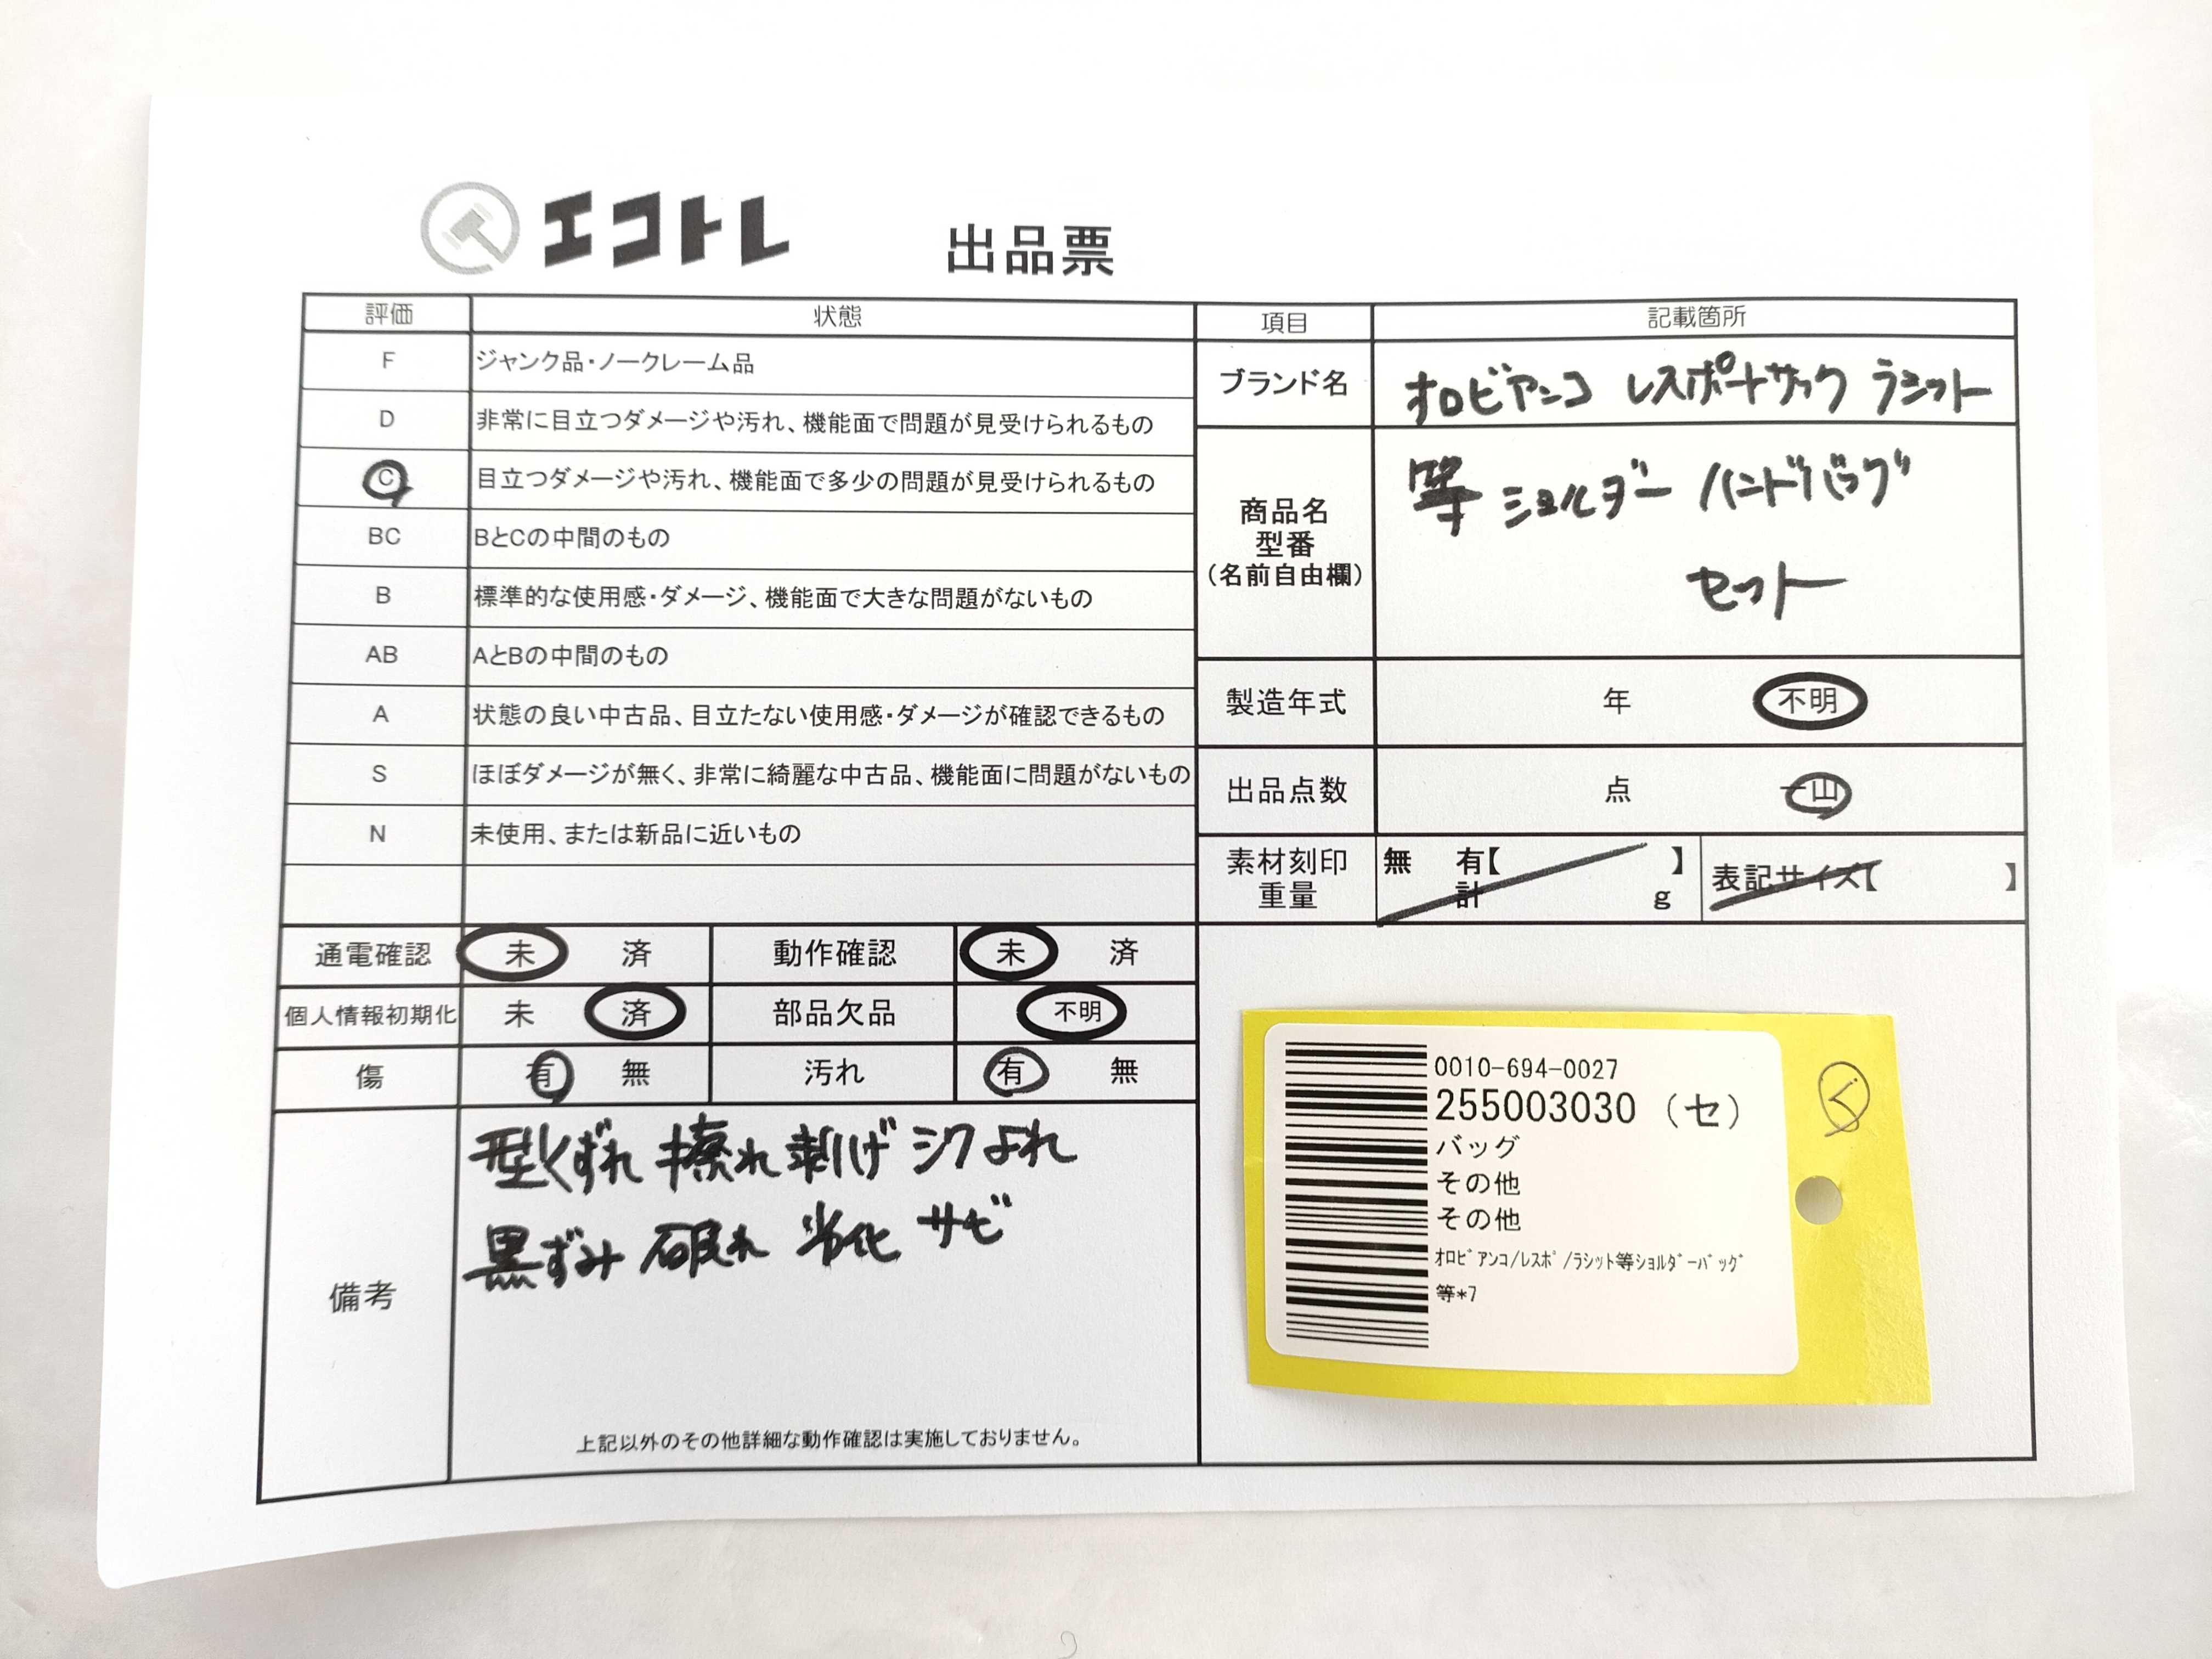 エコトレ 出品票
評価 状態
F ジャンク品・ノークレーム品
D 非常に目立つダメージや汚れ、機能面で問題が見受けられるもの
C 目立つダメージや汚れ、機能面で多少の問題が見受けられるもの
BC BとCの中間のもの
B 標準的な使用感・ダメージ、機能面で大きな問題がないもの
AB AとBの中間のもの
A 状態の良い中古品、目立たない使用感・ダメージが確認できるもの
S ほぼダメージが無く、非常に綺麗な中古品、機能面に問題がないもの
N 未使用、または新品に近いもの
通電確認 未 済 動作確認 未 済
個人情報初期化 未 済 部品欠品 不明
傷 有 無 汚れ 有 無
備考
型くずれ 擦れ 剥げ シワ よれ
黒ずみ 破れ 劣化 サビ
上記以外のその他詳細な動作確認は実施しておりません。
項目 記載箇所
ブランド名 オロビアンコ レスポートサック ラシット
商品名
型番
(名前自由欄)
等 ショルダー ハンドバッグ
セット
製造年式 年 不明
出品点数 点 一山
素材刻印 無 有【 】
重量 計 g
表記サイズ【 】
0010-694-0027
255003030 (セ)
バッグ
その他
その他
ｵﾛﾋﾞｱﾝｺ/ﾚｽﾎﾟ/ﾗｼｯﾄ等ｼｮﾙﾀﾞｰﾊﾞｯｸﾞ
等*7
く